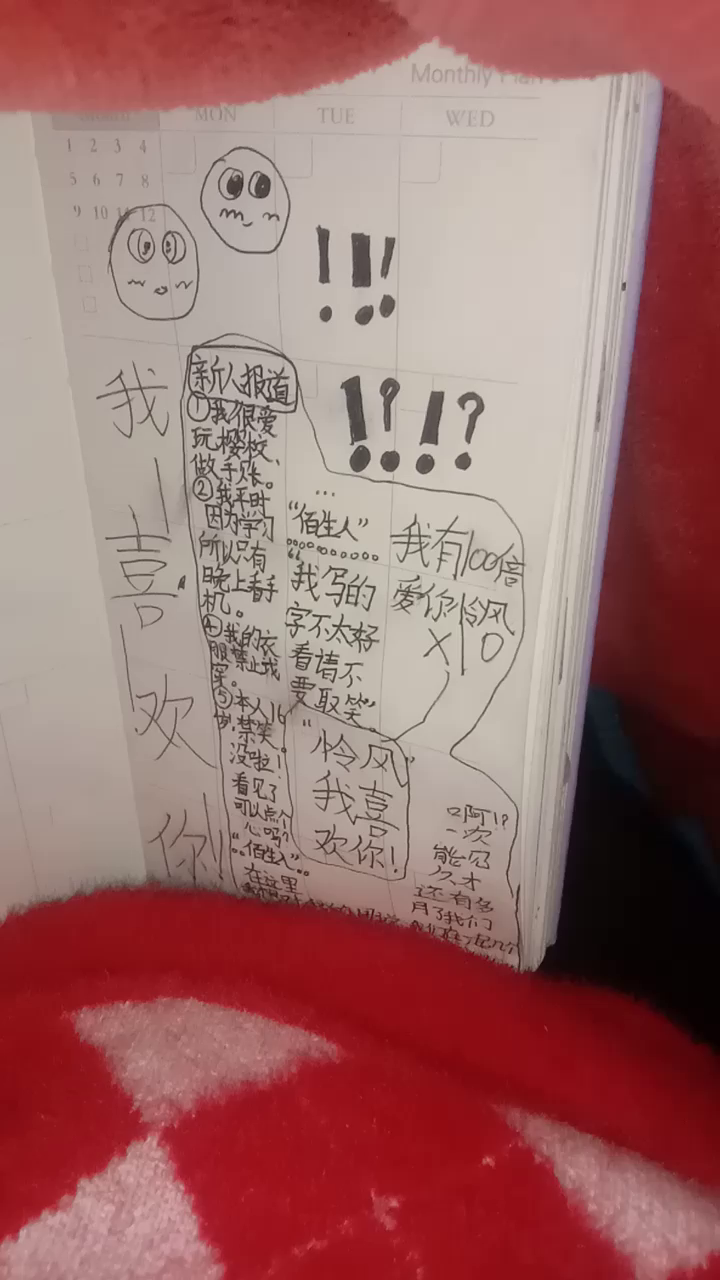 Monthly Plan
MON
TUE
WED
1 2 3 4
5 6 7 8
9 10 11 12
!!!
!?!?
我
喜
欢
你!
新人报道
①我很爱
玩樱校、
做手账。
②我平时
因为学习
所以只有
晚上看手
机。
④我的衣
服禁止戎
穿。
⑤本人16
岁,禁笑。
没啦!
看见了
可以点个
心吗?
“佰生人”
在这里
...
“佰生人”
“我写的
字不太好
看请不
要取笑”
“怜风”
我喜
欢你!
我有100倍
爱你怜风
X O
啊!?
一次
能见
久才
还有多
月了我们